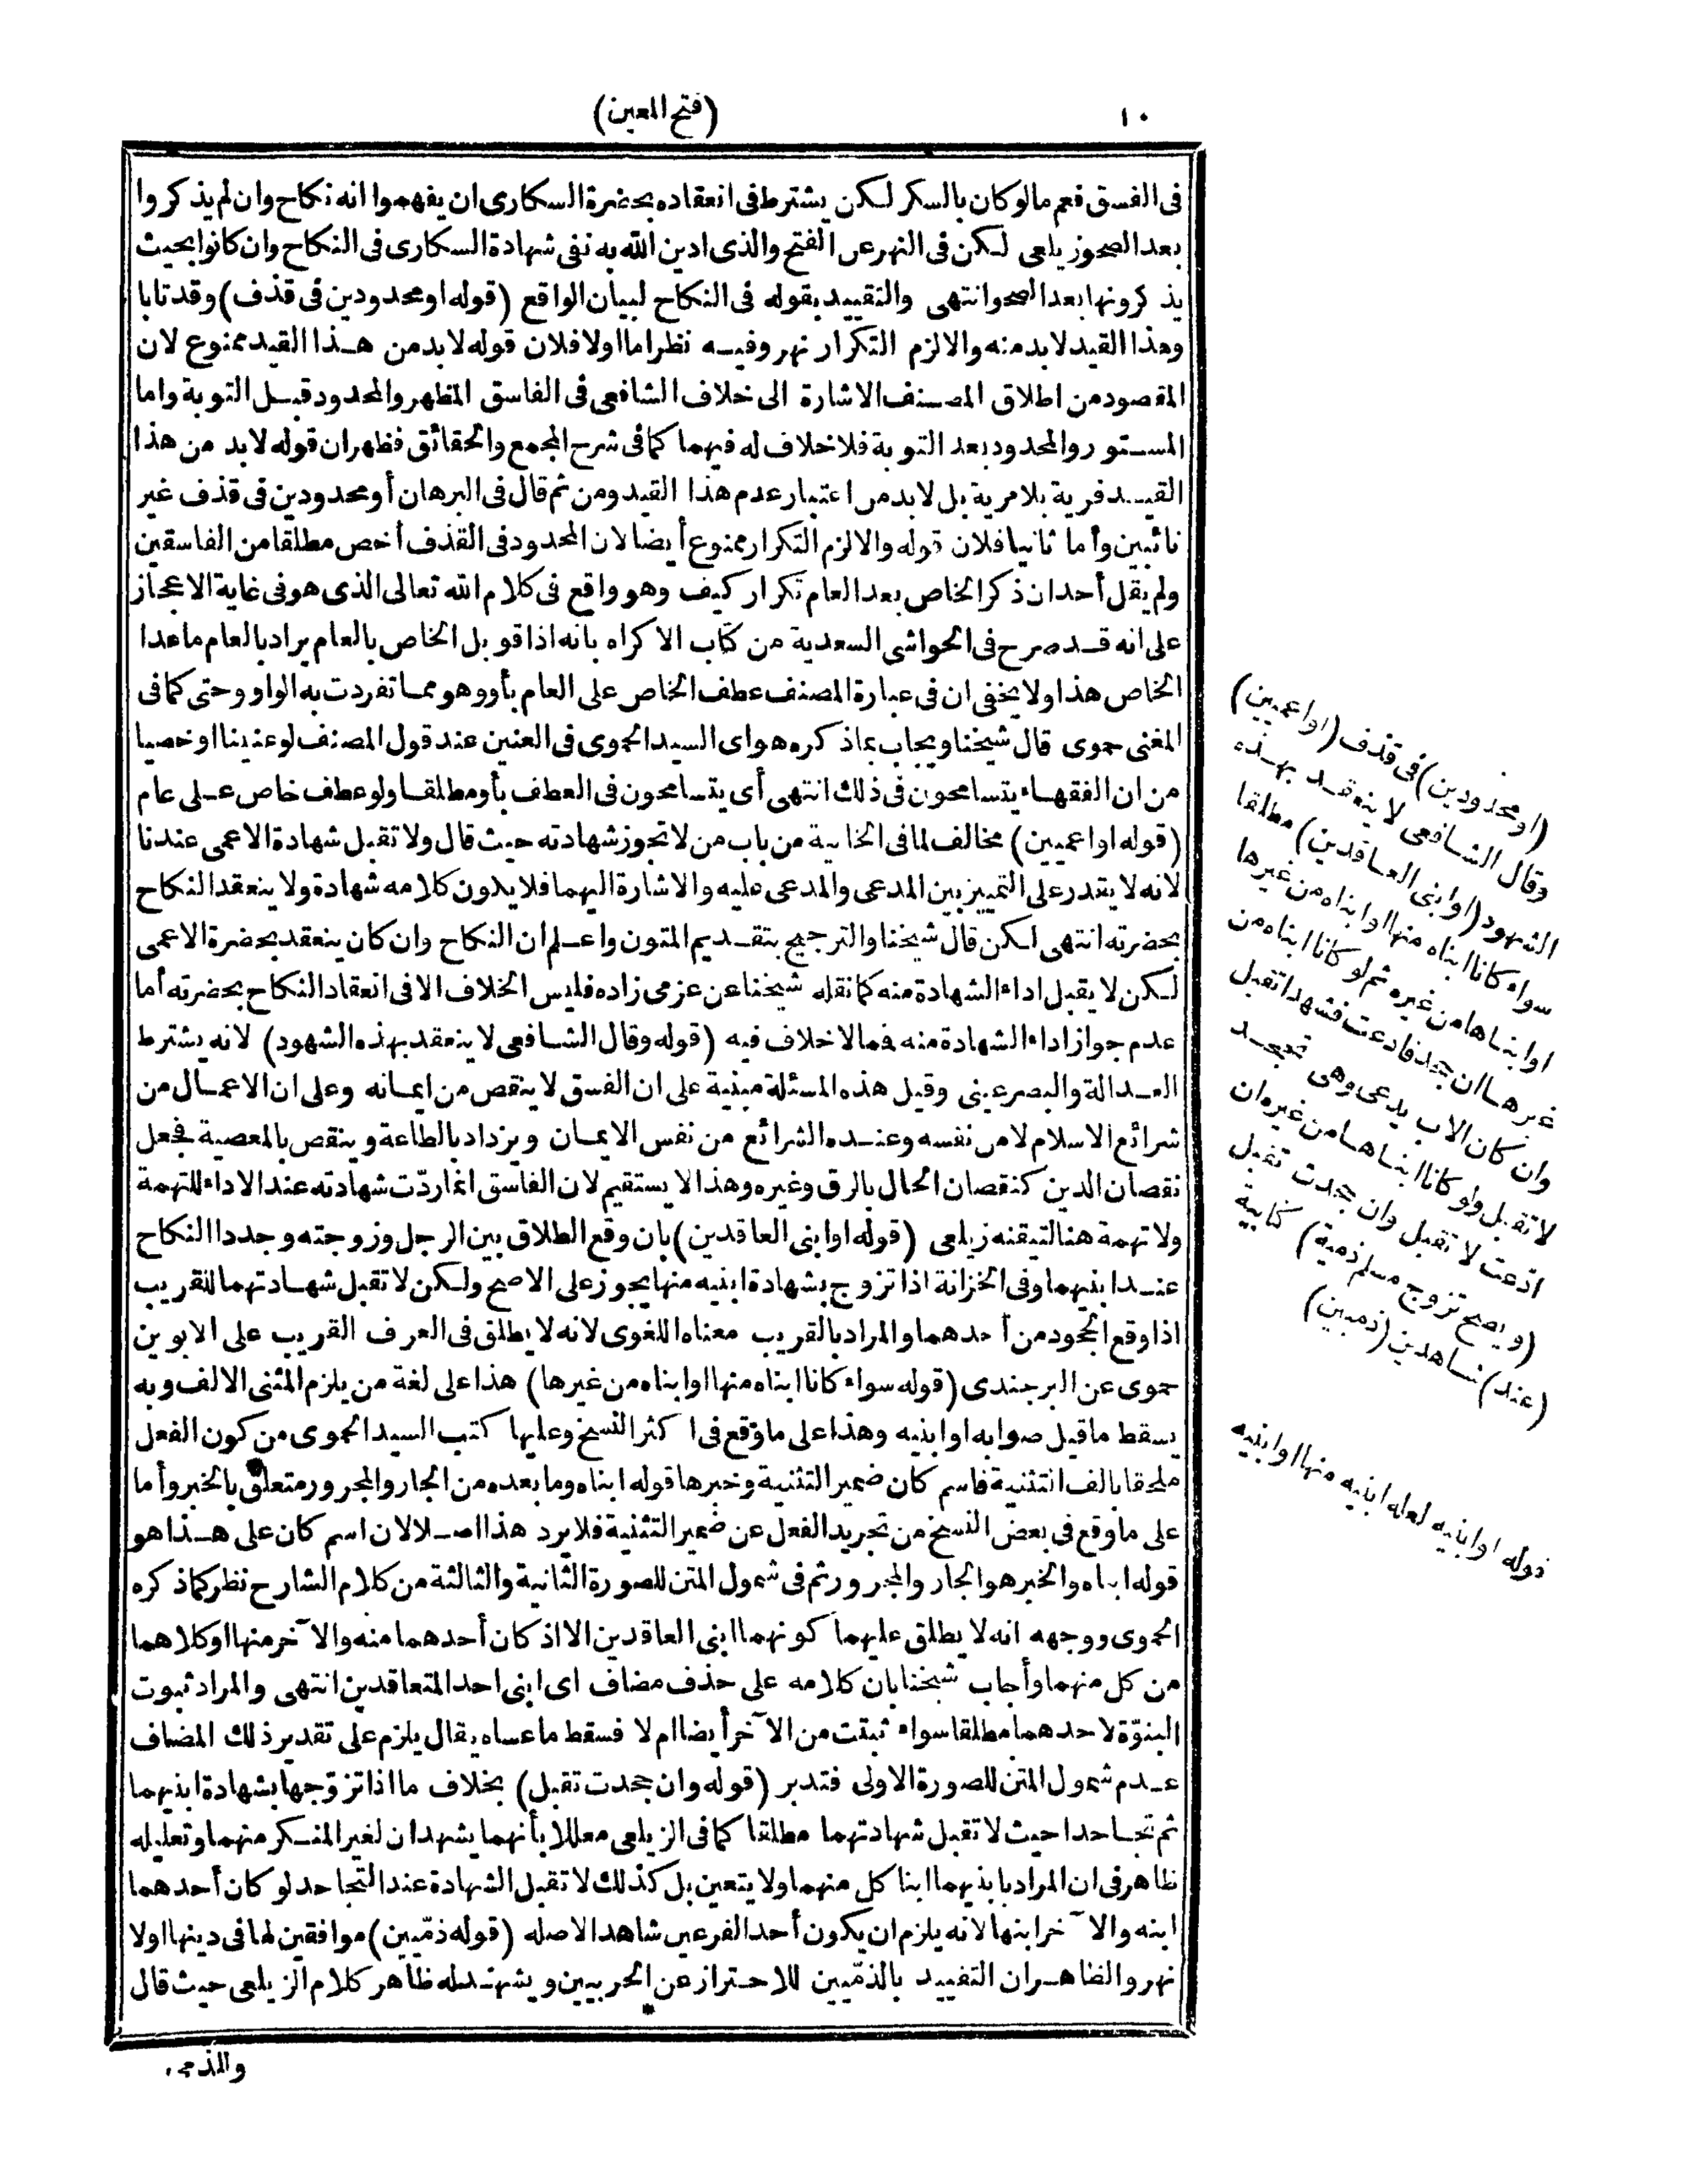 ١٠
(فتح المعين)
فى الفسق فعم مالو كان بالسكر لكن يشترط فى انعقاده بحضرة السكارى ان يفهموا انه نكاح وان لم يذكروا
بعد الصحو زيلعى لكن فى النهر عن الفتح والذى ادين الله به نفى شهادة السكارى فى النكاح وان كانوا بحيث
يذكرونها بعد الصحو انتهى والتقييد بقوله فى النكاح لبيان الواقع (قوله او محدودين فى قذف) وقد تابا
وهذا القيد لابد منه والا لزم التكرار نهر وفيه نظر اما اولا فلان قوله لابد من هذا القيد ممنوع لان
المقصود من اطلاق المصنف الاشارة الى خلاف الشافعى فى الفاسق المظهر والمحدود قبل التوبة واما
المستور والمحدود بعد التوبة فلا خلاف له فيهما كما فى شرح المجمع والحقائق فظهر ان قوله لابد من هذا
القيد فرية بلا مرية بل لابد من اعتبار عدم هذا القيد ومن ثم قال فى البرهان أو محدودين فى قذف غير
تائبين وأما ثانيا فلان قوله والا لزم التكرار ممنوع أيضا لان المحدود فى القذف أخص مطلقا من الفاسقين
ولم يقل أحد ان ذكر الخاص بعد العام تكرار كيف وهو واقع فى كلام الله تعالى الذى هو فى غاية الاعجاز
على انه قد صرح فى الحواشى السعدية من كتاب الاكراه بانه اذا قوبل الخاص بالعام يراد بالعام ماعدا
الخاص هذا ولا يخفى ان فى عبارة المصنف عطف الخاص على العام بأو وهو مما تفردت به الواو وحتى كما فى
المغنى حموى قال شيخنا ويجاب بماذكره هو اى السيد الحموى فى العنين عند قول المصنف لو عنينا او خصيا
من ان الفقهاء يتسامحون فى ذلك انتهى أى يتسامحون فى العطف بأو مطلقا ولو عطف خاص على عام
(قوله او اعميين) مخالف لما فى الخانية من باب من لا تجوز شهادته حيث قال ولا تقبل شهادة الاعمى عندنا
لانه لا يقدر على التمييز بين المدعى والمدعى عليه والاشارة اليهما فلا يكون كلامه شهادة ولا ينعقد النكاح
بحضرته انتهى لكن قال شيخنا والترجيح بتقديم المتون واعلم ان النكاح وان كان ينعقد بحضرة الاعمى
لكن لا يقبل اداء الشهادة منه كما نقله شيخنا عن عزمى زاده فليس الخلاف الا فى انعقاد النكاح بحضرته أما
عدم جواز اداء الشهادة منه فمما لا خلاف فيه (قوله وقال الشافعى لا ينعقد بهذه الشهود) لانه يشترط
العدالة والبصر عينى وقيل هذه المسئلة مبنية على ان الفسق لا ينقص من ايمانه وعلى ان الاعمال من
شرائع الاسلام لا من نفسه وعنده الشرائع من نفس الايمان ويزداد بالطاعة وينقص بالمعصية فجعل
نقصان الدين كنقصان الحال بالرق وغيره وهذا لا يستقيم لان الفاسق انما ردّت شهادته عند الاداء للتهمة
ولا تهمة هنا لتيقنه زيلعى (قوله او ابنى العاقدين) بان وقع الطلاق بين الرجل وزوجته وجددا النكاح
عند ابنيهما وفى الخزانة اذا تزوج بشهادة ابنيه منها يجوز على الاصح ولكن لا تقبل شهادتهما للقريب
اذا وقع الجحود من أحدهما والمراد بالقريب معناه اللغوى لانه لا يطلق فى العرف القريب على الابوين
حموى عن البرجندى (قوله سواء كانا ابناه منها او ابناه من غيرها) هذا على لغة من يلزم المثنى الالف وبه
يسقط ماقيل صوابه او ابنيه وهذا على ما وقع فى اكثر النسخ وعليها كتب السيد الحموى من كون الفعل
ملحقا بالف التثنية فاسم كان ضمير التثنية وخبرها قوله ابناه وما بعده من الجار والمجرور متعلق بالخبر وأما
على ما وقع فى بعض النسخ من تجريد الفعل عن ضمير التثنية فلا يرد هذا اصلا لان اسم كان على هذا هو
قوله ابناه والخبر هو الجار والمجرور ثم فى شمول المتن للصورة الثانية والثالثة من كلام الشارح نظر كماذكره
الحموى ووجهه انه لا يطلق عليهما كونهما ابنى العاقدين الا اذ كان أحدهما منه والآخر منها او كلاهما
من كل منهما وأجاب شيخنا بان كلامه على حذف مضاف اى ابنى احد المتعاقدين انتهى والمراد ثبوت
البنوّة لاحدهما مطلقا سواء ثبتت من الآخر أيضا ام لا فسقط ماعساه يقال يلزم على تقدير ذلك المضاف
عدم شمول المتن للصورة الاولى فتدبر (قوله وان جحدت تقبل) بخلاف ما اذا تزوجها بشهادة ابنيهما
ثم تجاحدا حيث لا تقبل شهادتهما مطلقا كما فى الزيلعى معللا بأنهما يشهدان لغير المنكر منهما وتعليله
ظاهر فى ان المراد بابنيهما ابنا كل منهما ولا يتعين بل كذلك لا تقبل الشهادة عند التجاحد لو كان أحدهما
ابنه والآخر ابنها لانه يلزم ان يكون أحد الفرعين شاهدا لاصله (قوله ذمّيين) موافقين لها فى دينها اولا
نهر والظاهر ان التقييد بالذمّيين للاحتراز عن الحربيين ويشهد له ظاهر كلام الزيلعى حيث قال
والذمى
(او محدودين) فى قذف (او اعميين)
وقال الشافعى لا ينعقد بهذه
الشهود (او ابنى العاقدين) مطلقا
سواء كانا ابناه منها او ابناه من غيرها
او ابناها من غيره ثم لو كانا ابناه من
غيرها ان جحد فادعت فشهدا تقبل
وان كان الاب يدعى وهى تجحد
لا تقبل ولو كانا ابناها من غيره ان
ادّعت لا تقبل وان جحدت تقبل
(و يصح تزوج مسلم ذمية) كتابية
(عند) شاهدين (ذميين)
قوله او ابنيه لعله ابنيه منها او ابنيه